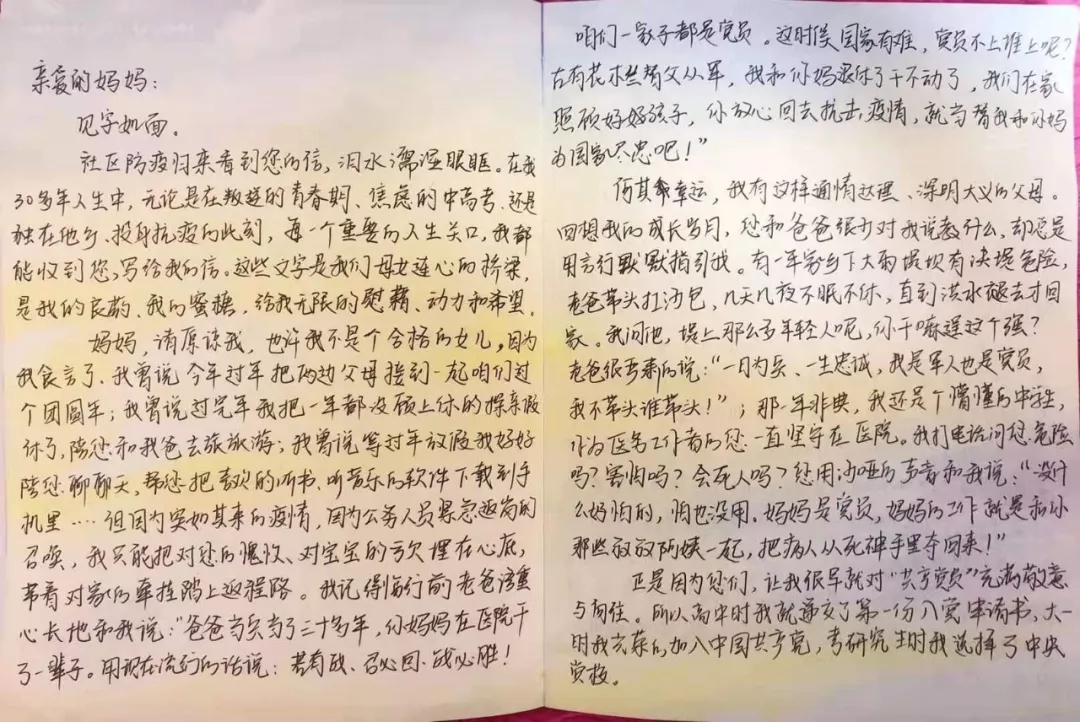 亲爱的妈妈：
见字如面。
社区防疫归来看到您的信，泪水濡湿眼眶。在我
30多年人生中，无论是在叛逆的青春期、焦虑的中高考、还是
独在他乡、投身抗疫的此刻，每一个重要的人生关口，我都
能收到您写给我的信。这些文字是我们母女连心的桥梁，
是我的良药、我的蜜糖，给我无限的慰藉、动力和希望。
妈妈，请原谅我，也许我不是个合格的女儿，因为
我食言了、我曾说今年过年把两边父母接到一起咱们过
个团圆年；我曾说过完年我把一年都没顾上休的探亲假
休了，陪您和我爸去旅旅游；我曾说等过年放假我好好
陪您聊聊天，帮您把喜欢的听书、听音乐的软件下载到手
机里……但因为突如其来的疫情，因为公务人员紧急返岗的
召唤，我只能把对您的愧疚、对宝宝的亏欠埋在心底，
带着对家的牵挂踏上返程路。我记得临行前老爸语重
心长地和我说："爸爸当兵当了三十多年，你妈妈在医院干
了一辈子。用现在流行的话说：若有战、召必回、战必胜！
咱们一家子都是党员。这时候国家有难，党员不上谁上呢？
古有花木兰替父从军，我和你妈退休了干不动了，我们在家
照顾好好孩子，你放心回去抗击疫情，就当替我和你妈
为国家尽忠吧！"
何其幸运，我有这样通情达理、深明大义的父母。
回想我的成长岁月，您和爸爸很少对我说教什么，却总是
用言行默默指引我。有一年家乡下大雨堤坝有决堤危险，
老爸带头扛沙包，几天几夜不眠不休，直到洪水褪去才回
家。我问他，堤上那么多年轻人呢，你干嘛逞这个强？
老爸很严肃的说："一日为兵、一生忠诚，我是军人也是党员，
我不带头谁带头！"；那一年非典，我还是个懵懂的中学生，
作为医务工作者的您一直坚守在医院。我打电话问您危险
吗？害怕吗？会死人吗？您用沙哑的声音和我说："没什
么好怕的，怕也没用。妈妈是党员，妈妈的工作就是和你
那些叔叔阿姨一起，把病人从死神手里夺回来！"
正是因为您们，让我很早就对"共产党员"充满敬意
与向往。所以高中时我就递交了第一份入党申请书，大一
时我光荣的加入中国共产党，考研究生时我选择了中央
党校。